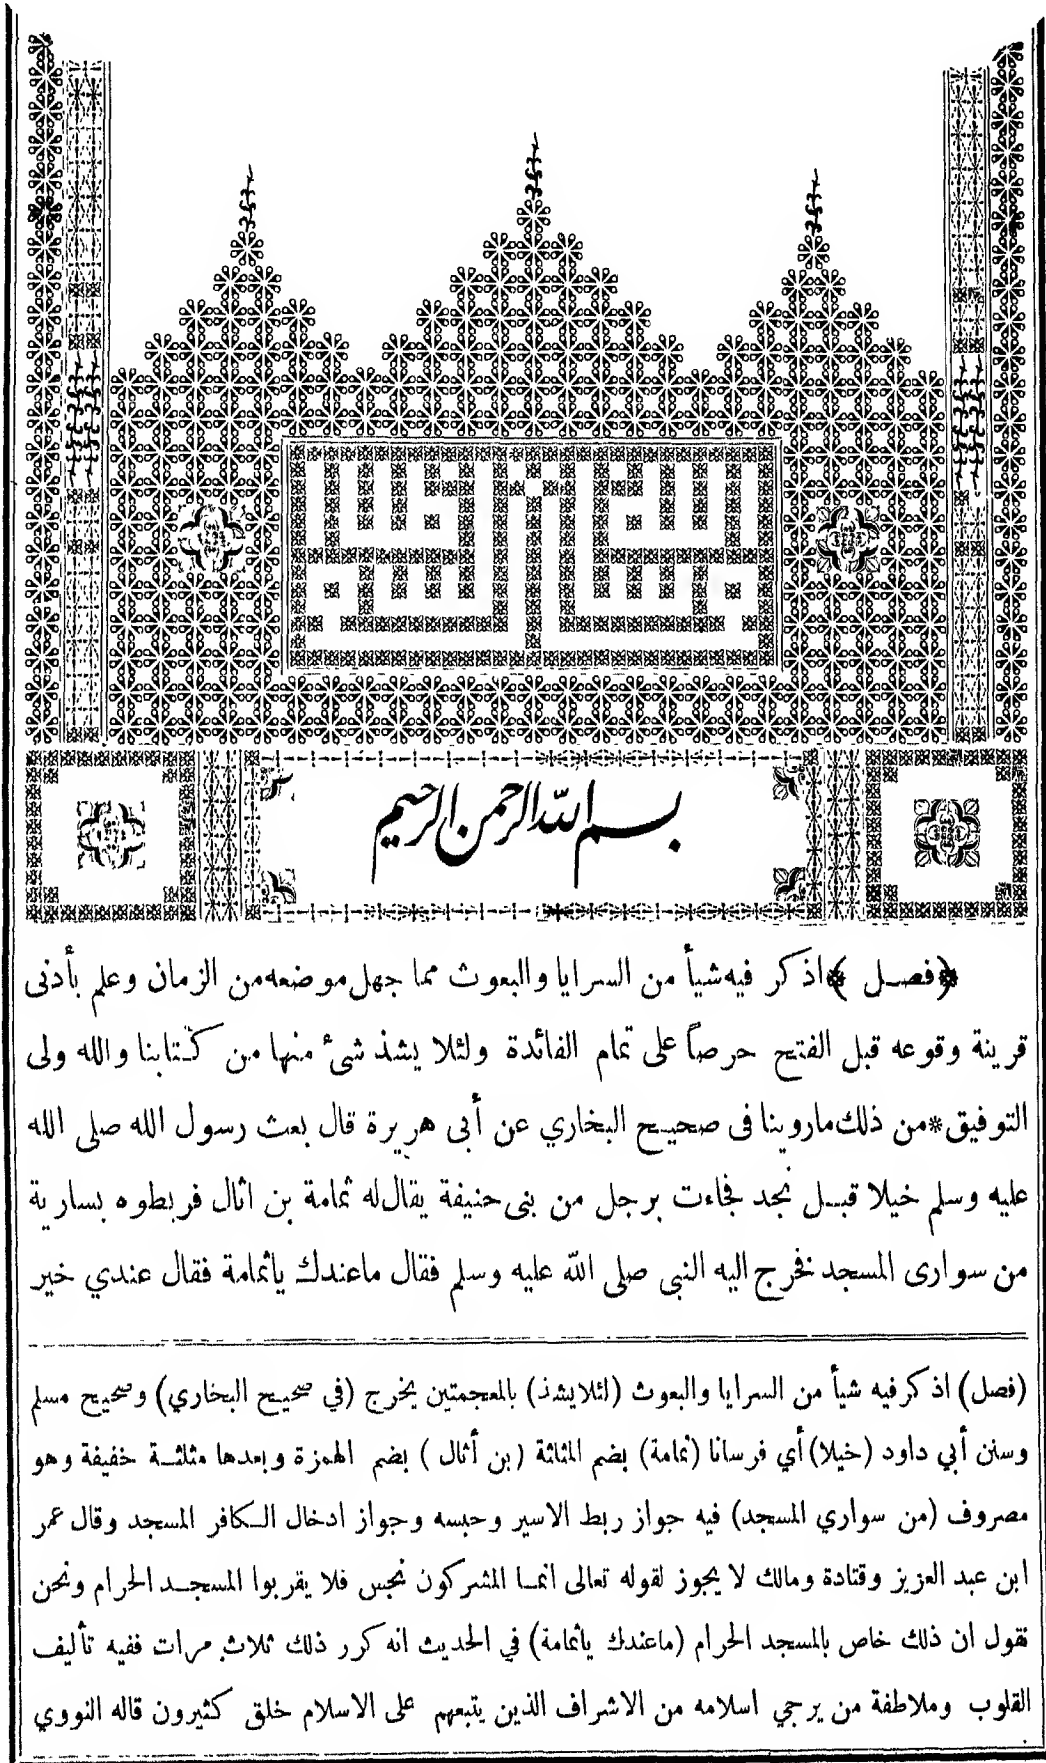 بسم الله الرحمن الرحيم
﴿فصل﴾ اذ كر فيه شيأ من السرايا والبعوث مما جهل موضعه من الزمان وعلم بأدنى
قرينة وقوعه قبل الفتح حرصاً على تمام الفائدة ولئلا يشذ شئ منها من كتابنا والله ولى
التوفيق*من ذلك ماروينا فى صحيح البخاري عن أبى هريرة قال بعث رسول الله صلى الله
عليه وسلم خيلا قبل نجد فجاءت برجل من بنى حنيفة يقال له ثمامة بن اثال فربطوه بسارية
من سوارى المسجد فخرج اليه النبى صلى الله عليه وسلم فقال ماعندك ياثمامة فقال عندي خير
(فصل) اذ كر فيه شيأ من السرايا والبعوث (لئلا يشذ) بالمعجمتين يخرج (في صحيح البخاري) وصحيح مسلم
وسنن أبي داود (خيلا) أي فرسانا (ثمامة) بضم المثاثة (بن أثال) بضم الهمزة وبعدها مثلثة خفيفة وهو
مصروف (من سواري المسجد) فيه جواز ربط الاسير وحبسه وجواز ادخال الكافر المسجد وقال عمر
ابن عبد العزيز وقتادة ومالك لا يجوز لقوله تعالى انما المشركون نجس فلا يقربوا المسجد الحرام ونحن
نقول ان ذلك خاص بالمسجد الحرام (ماعندك ياثمامة) في الحديث انه كرر ذلك ثلاث مرات ففيه تأليف
القلوب وملاطفة من يرجي اسلامه من الاشراف الذين يتبعهم على الاسلام خلق كثيرون قاله النووي